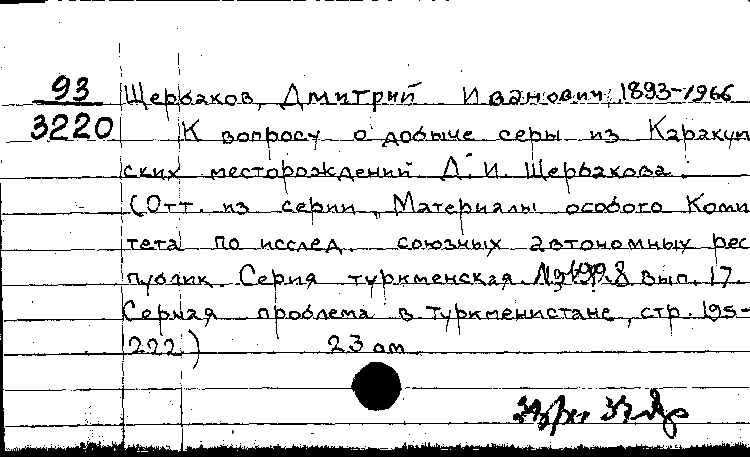 93 Щербаков, Дмитрий Иванович, 1893-1966
3220 К вопросу о добыче серы из Каракум
ских месторождений Д. И. Щербакова.
(Отт. из серии „Материалы особого Коми
тета по исслед. союзных автономных рес
публик. Серия туркменская. 1928 вып. 17.
Серная проблема в Туркменистане, стр. 195-
222)
23 см